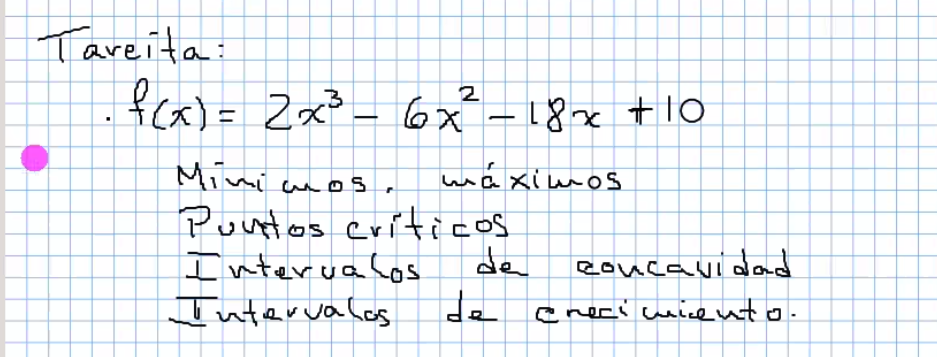 Tareita:
. f(x) = 2x³ - 6x² - 18x + 10
Mínimos, máximos
Puntos críticos
Intervalos de concavidad
Intervalos de crecimiento.